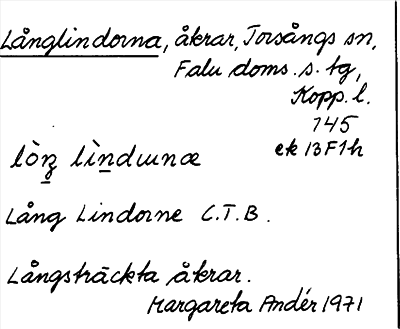 Långlindorna, åkrar, Torsångs sn,
Falu doms. s. tg,
Kopp. l.
145
ek 13F1h
lòŋ lìndɯnæ
Lång Lindorne C.T.B.
Långsträckta åkrar.
Margareta Andér 1971